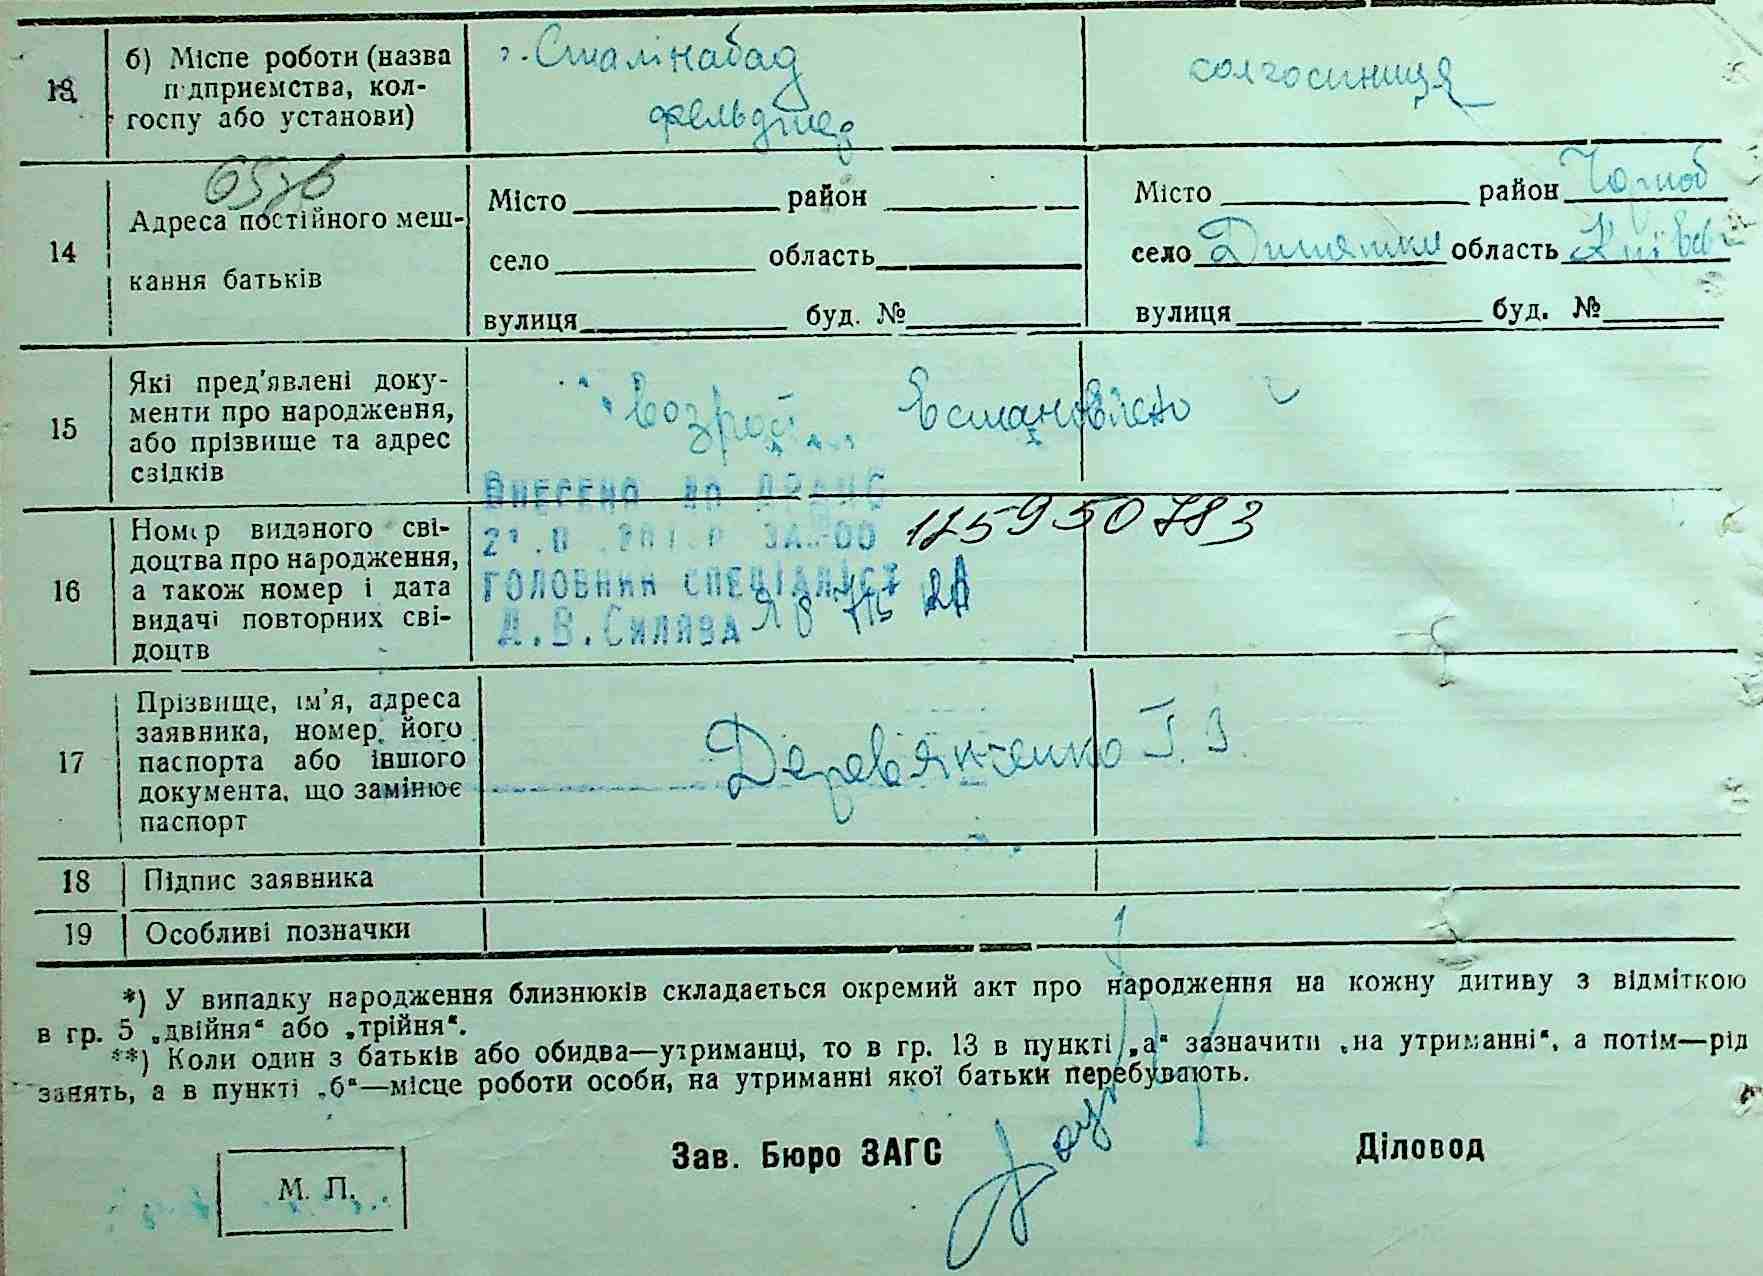 13
б) Місце роботи (назва
підприємства, кол-
госпу або установи)
г. Сталінабад
фельдшер
14
Адреса постійного меш-
кання батьків
Місто район
село область
вулиця буд. №
Місто район Чорноб
село Дитятки область Київсь
вулиця буд. №
15
Які пред'явлені доку-
менти про народження,
або прізвище та адрес
свідків
Встановлено
Внесено до ДРАЦС
16
Номер виданого сві-
доцтва про народження,
а також номер і дата
видачі повторних сві-
доцтв
125950783
ГОЛОВНИЙ СПЕЦІАЛІСТ
17
Прізвище, ім'я, адреса
заявника, номер його
паспорта або іншого
документа, що замінює
паспорт
Деревʼянченко Г. І.
18 Підпис заявника
19 Особливі позначки
*) У випадку народження близнюків складається окремий акт про народження на кожну дитину з відміткою
в гр. 5 „двійня“ або „трійня“.
**) Коли один з батьків або обидва—утриманці, то в гр. 13 в пункті „а“ зазначити „на утриманні“, а потім—рід
занять, а в пункті „б“—місце роботи особи, на утриманні якої батьки перебувають.
М. П.
Зав. Бюро ЗАГС
Діловод